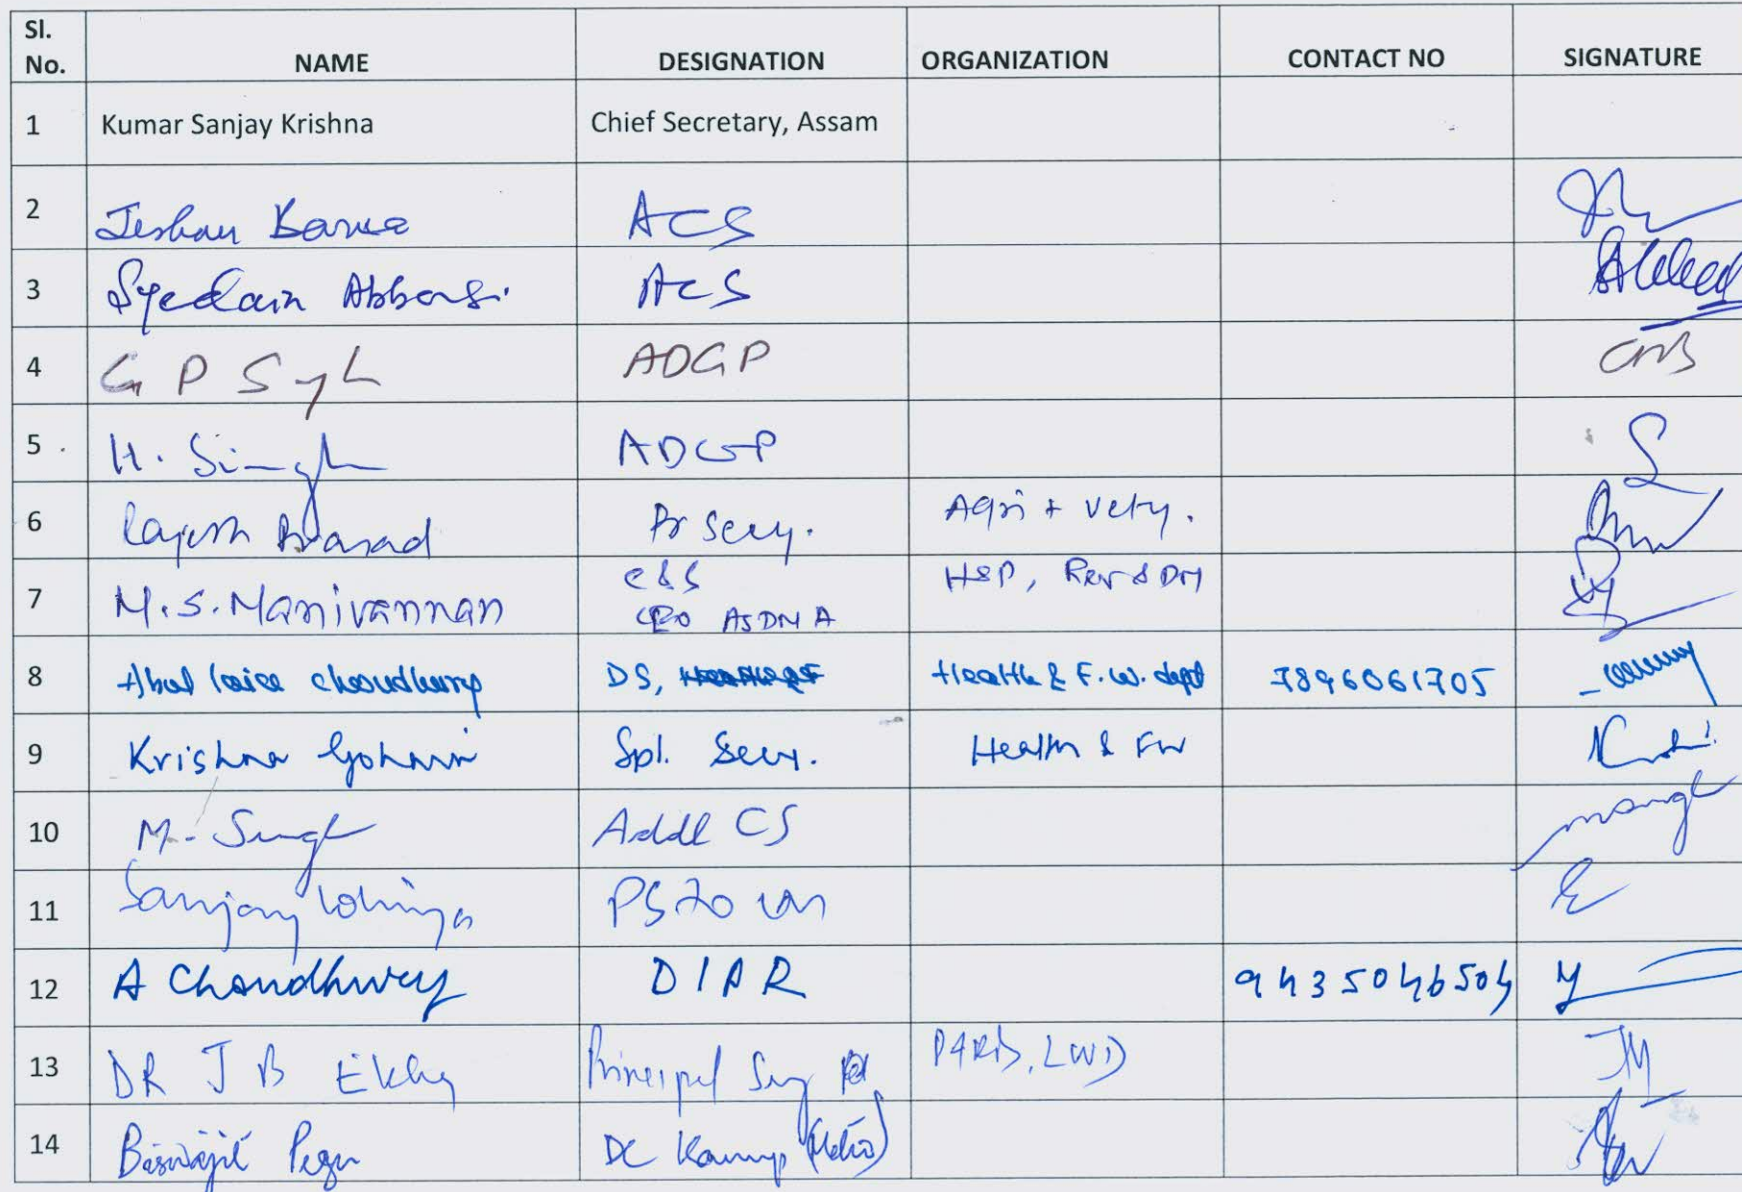 Sl. No. NAME DESIGNATION ORGANIZATION CONTACT NO SIGNATURE
1 Kumar Sanjay Krishna Chief Secretary, Assam
2 Jishnu Barua ACS
3 Syedain Abbasi ACS
4 G P Singh ADGP
5 H. Singh ADGP
6 Rajesh Prasad Pr Secy. Agri + Vety.
7 M.S. Manivannan C&S H&P, Rev & DM
CEO ASDMA
8 choudhury DS, Health & F.W. dept 7896061705
9 Krishna Gohain Spl. Secy. Health & FW
10 M. Singh Addl CS
11 Sanjay Lohiya PS to CM
12 A Choudhury DIPR 9435046504
13 DR J B Ekka Principal Secy
14 Biswajit Pegu DC Kamrup (Metro)